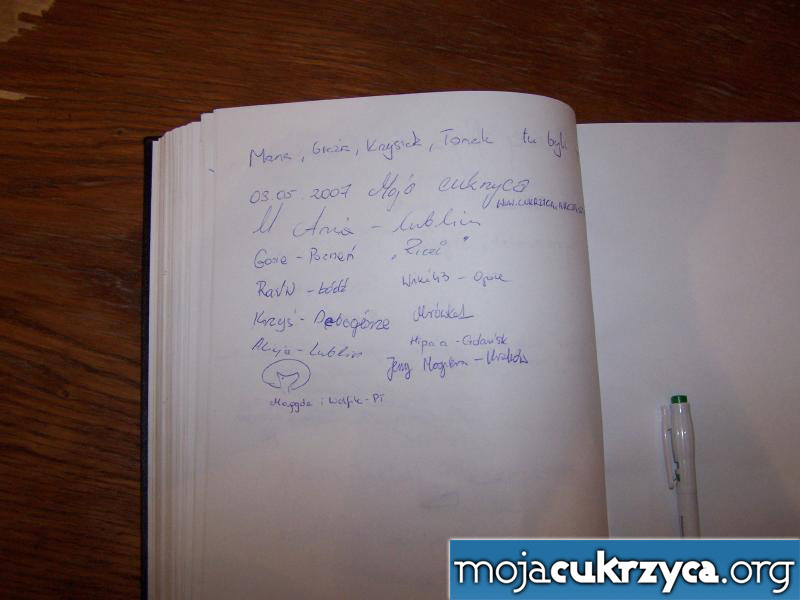 Mana, Grzia, Krzysiek, Tomek tu byli
03.05.2007 Moja cukrzyca
M Ania - Lublin
Gosie - Poznań
RavW - Łódź
Wiki43 - Opole
Krzyś - Dębogórze
Mrówka
Alicja - Lublin
Hipcia - Gdańsk
Jerzy Magiera - Kraków
Maggda i Wolfik - PT
mojacukrzyca.org